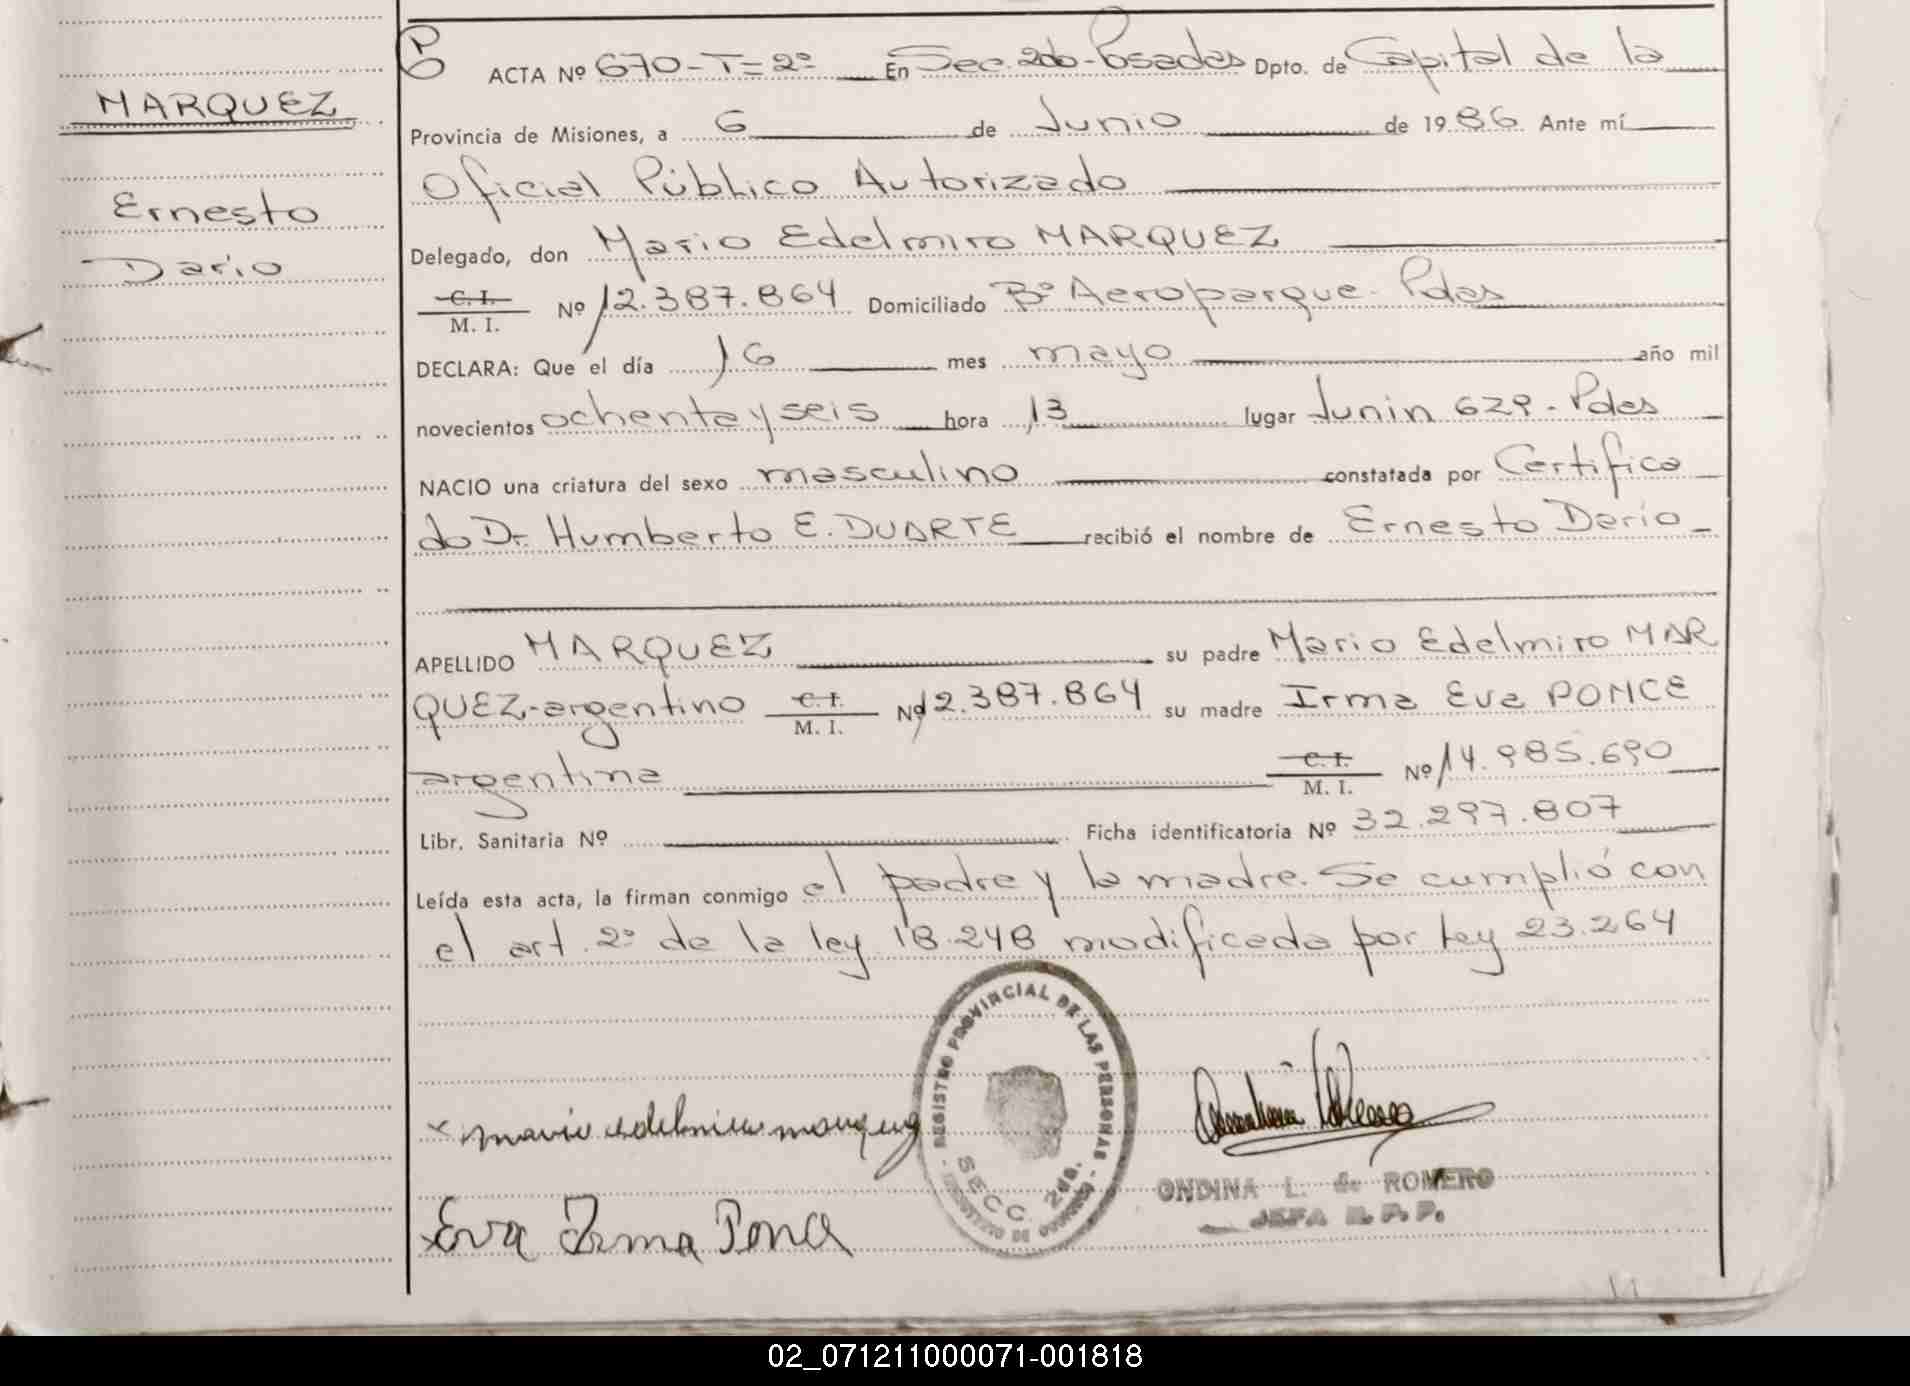 MARQUEZ
Ernesto
Dario
ACTA Nº 670-T=2º En Sec. 2da-Posadas Dpto. de Capital de la
Provincia de Misiones, a 6 de Junio de 1986 Ante mí
Oficial Público Autorizado
Delegado, don Mario Edelmiro MARQUEZ
C. I.
M. I. Nº 12.387.864 Domiciliado Bº Aeroparque-Pdas
DECLARA: Que el día 16 mes mayo año mil
novecientos ochenta y seis hora 13 lugar Junin 629-Pdas
NACIO una criatura del sexo masculino constatada por Certifica
do Dr. Humberto E. DUARTE recibió el nombre de Ernesto Dario
APELLIDO MARQUEZ su padre Mario Edelmiro MAR
QUEZ-argentino C. I. M. I. Nº 12.387.864 su madre Irma Eva PONCE
argentina C. I. M. I. Nº 14.985.690
Libr. Sanitaria Nº Ficha identificatoria Nº 32.297.807
Leída esta acta, la firman conmigo el padre y la madre. Se cumplió con
el art. 2º de la ley 18.248 modificada por ley 23.264
REGISTRO PROVINCIAL DE LAS PERSONAS
SECC. 2da.
MINISTERIO DE GOBIERNO
x mario edelmiro marquez
ONDINA L. de ROMERO
JEFA R.P.P.
Eva Irma Ponce
02_071211000071-001818